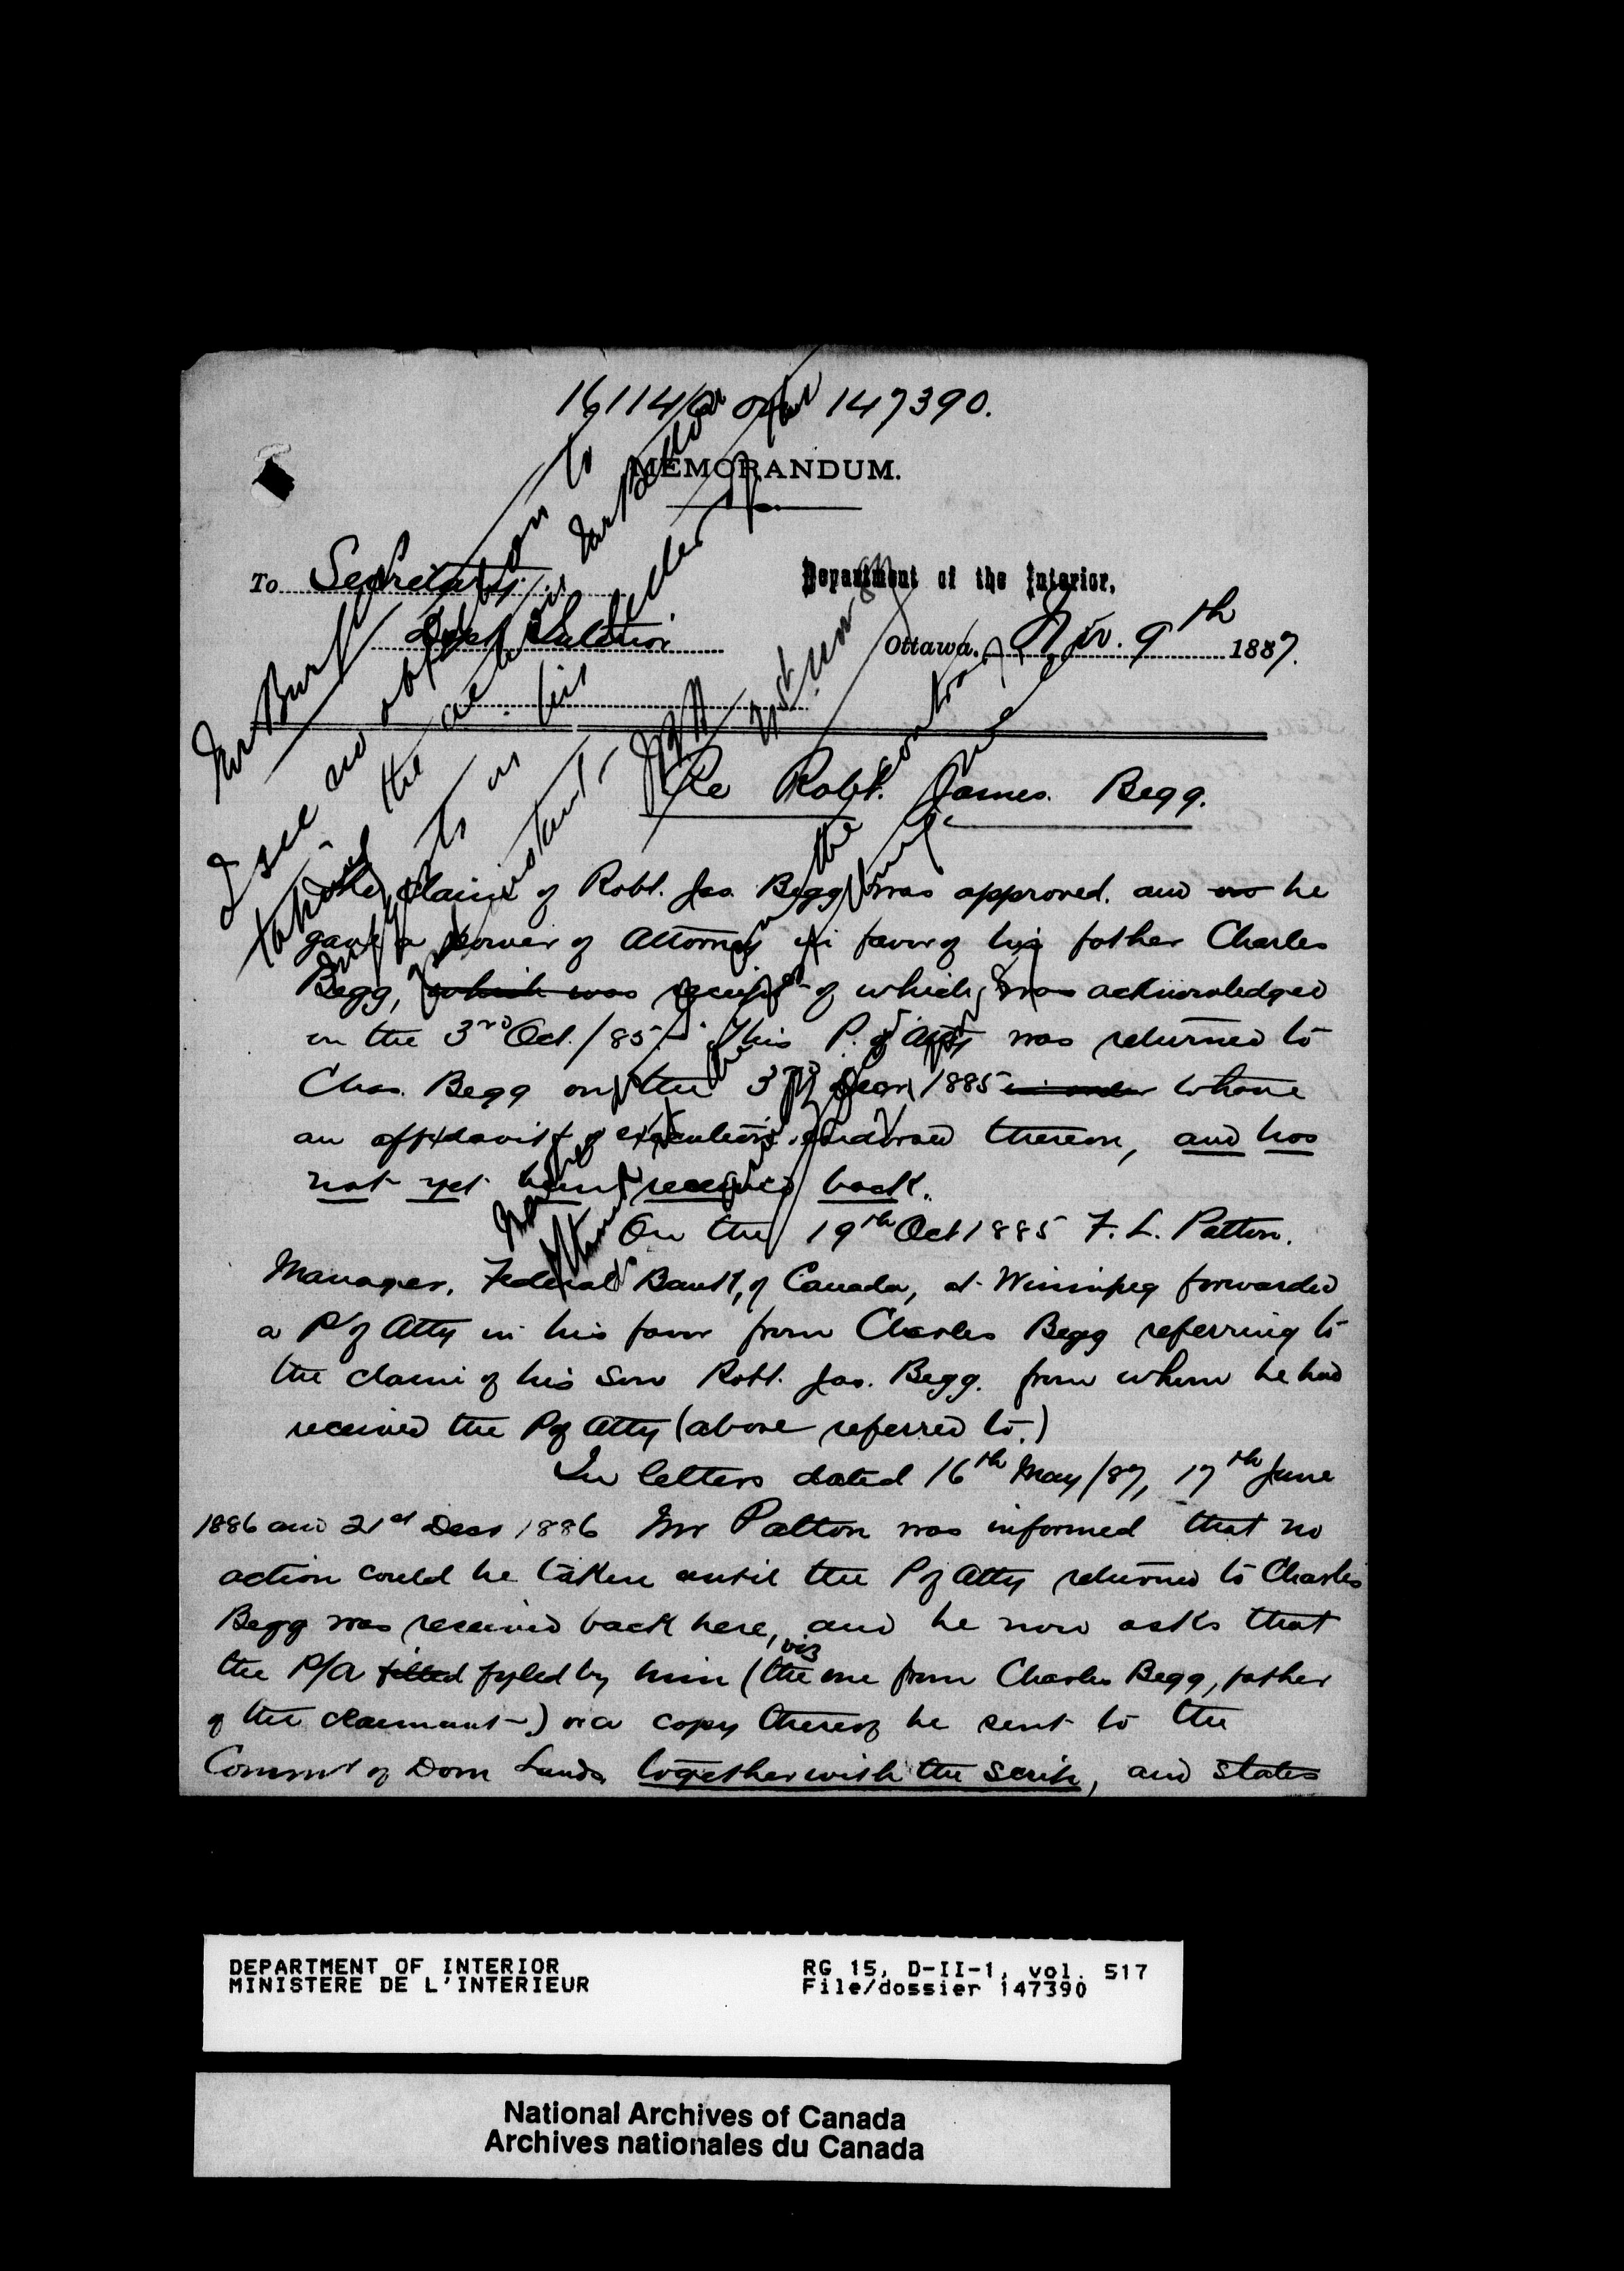 147390.
MEMORANDUM.
To Secretary
Department of the Interior,
Ottawa, Nov. 9th 1887.
Re Robt. James Begg.
The claim of Robt. Jas. Begg was approved. and he
gave a power of Attorney in favor of his father Charles
Begg, which was receipt of which was acknowledged
on the 3rd Oct./85. This P. of Atty was returned to
Chas. Begg on the 3rd 1885 in order to have
an affidavit of execution endorsed thereon, and has
not yet been received back.
On the 19th Oct 1885 F. L. Patton.
Manager, Federal Bank, of Canada, at Winnipeg forwarded
a P of Atty in his favor from Charles Begg referring to
the claim of his son Robt. Jas. Begg. from whom he had
received the P of Atty (above referred to.)
In letters dated 16th May/87, 17th June
1886 and 21st Decr 1886 Mr Patton was informed that no
action could be taken until the P of Atty returned to Charles
Begg was received back here, and he now asks that
the P/A filled fyled by him (viz the one from Charles Begg, father
of the claimant) or a copy thereof be sent to the
Commr of Dom Lands together with the scrip, and states
Mr Burgess
I see no objection to
taking the action Mr
in his letter of
instant
on the contrary
DEPARTMENT OF INTERIOR
MINISTERE DE L'INTERIEUR
RG 15, D-II-1, vol. 517
File/dossier 147390
National Archives of Canada
Archives nationales du Canada